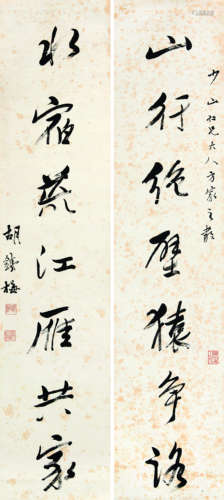 少山仁兄大人方家之教
山行绝壁猿争路
水宿荒江雁共家
胡鐵梅